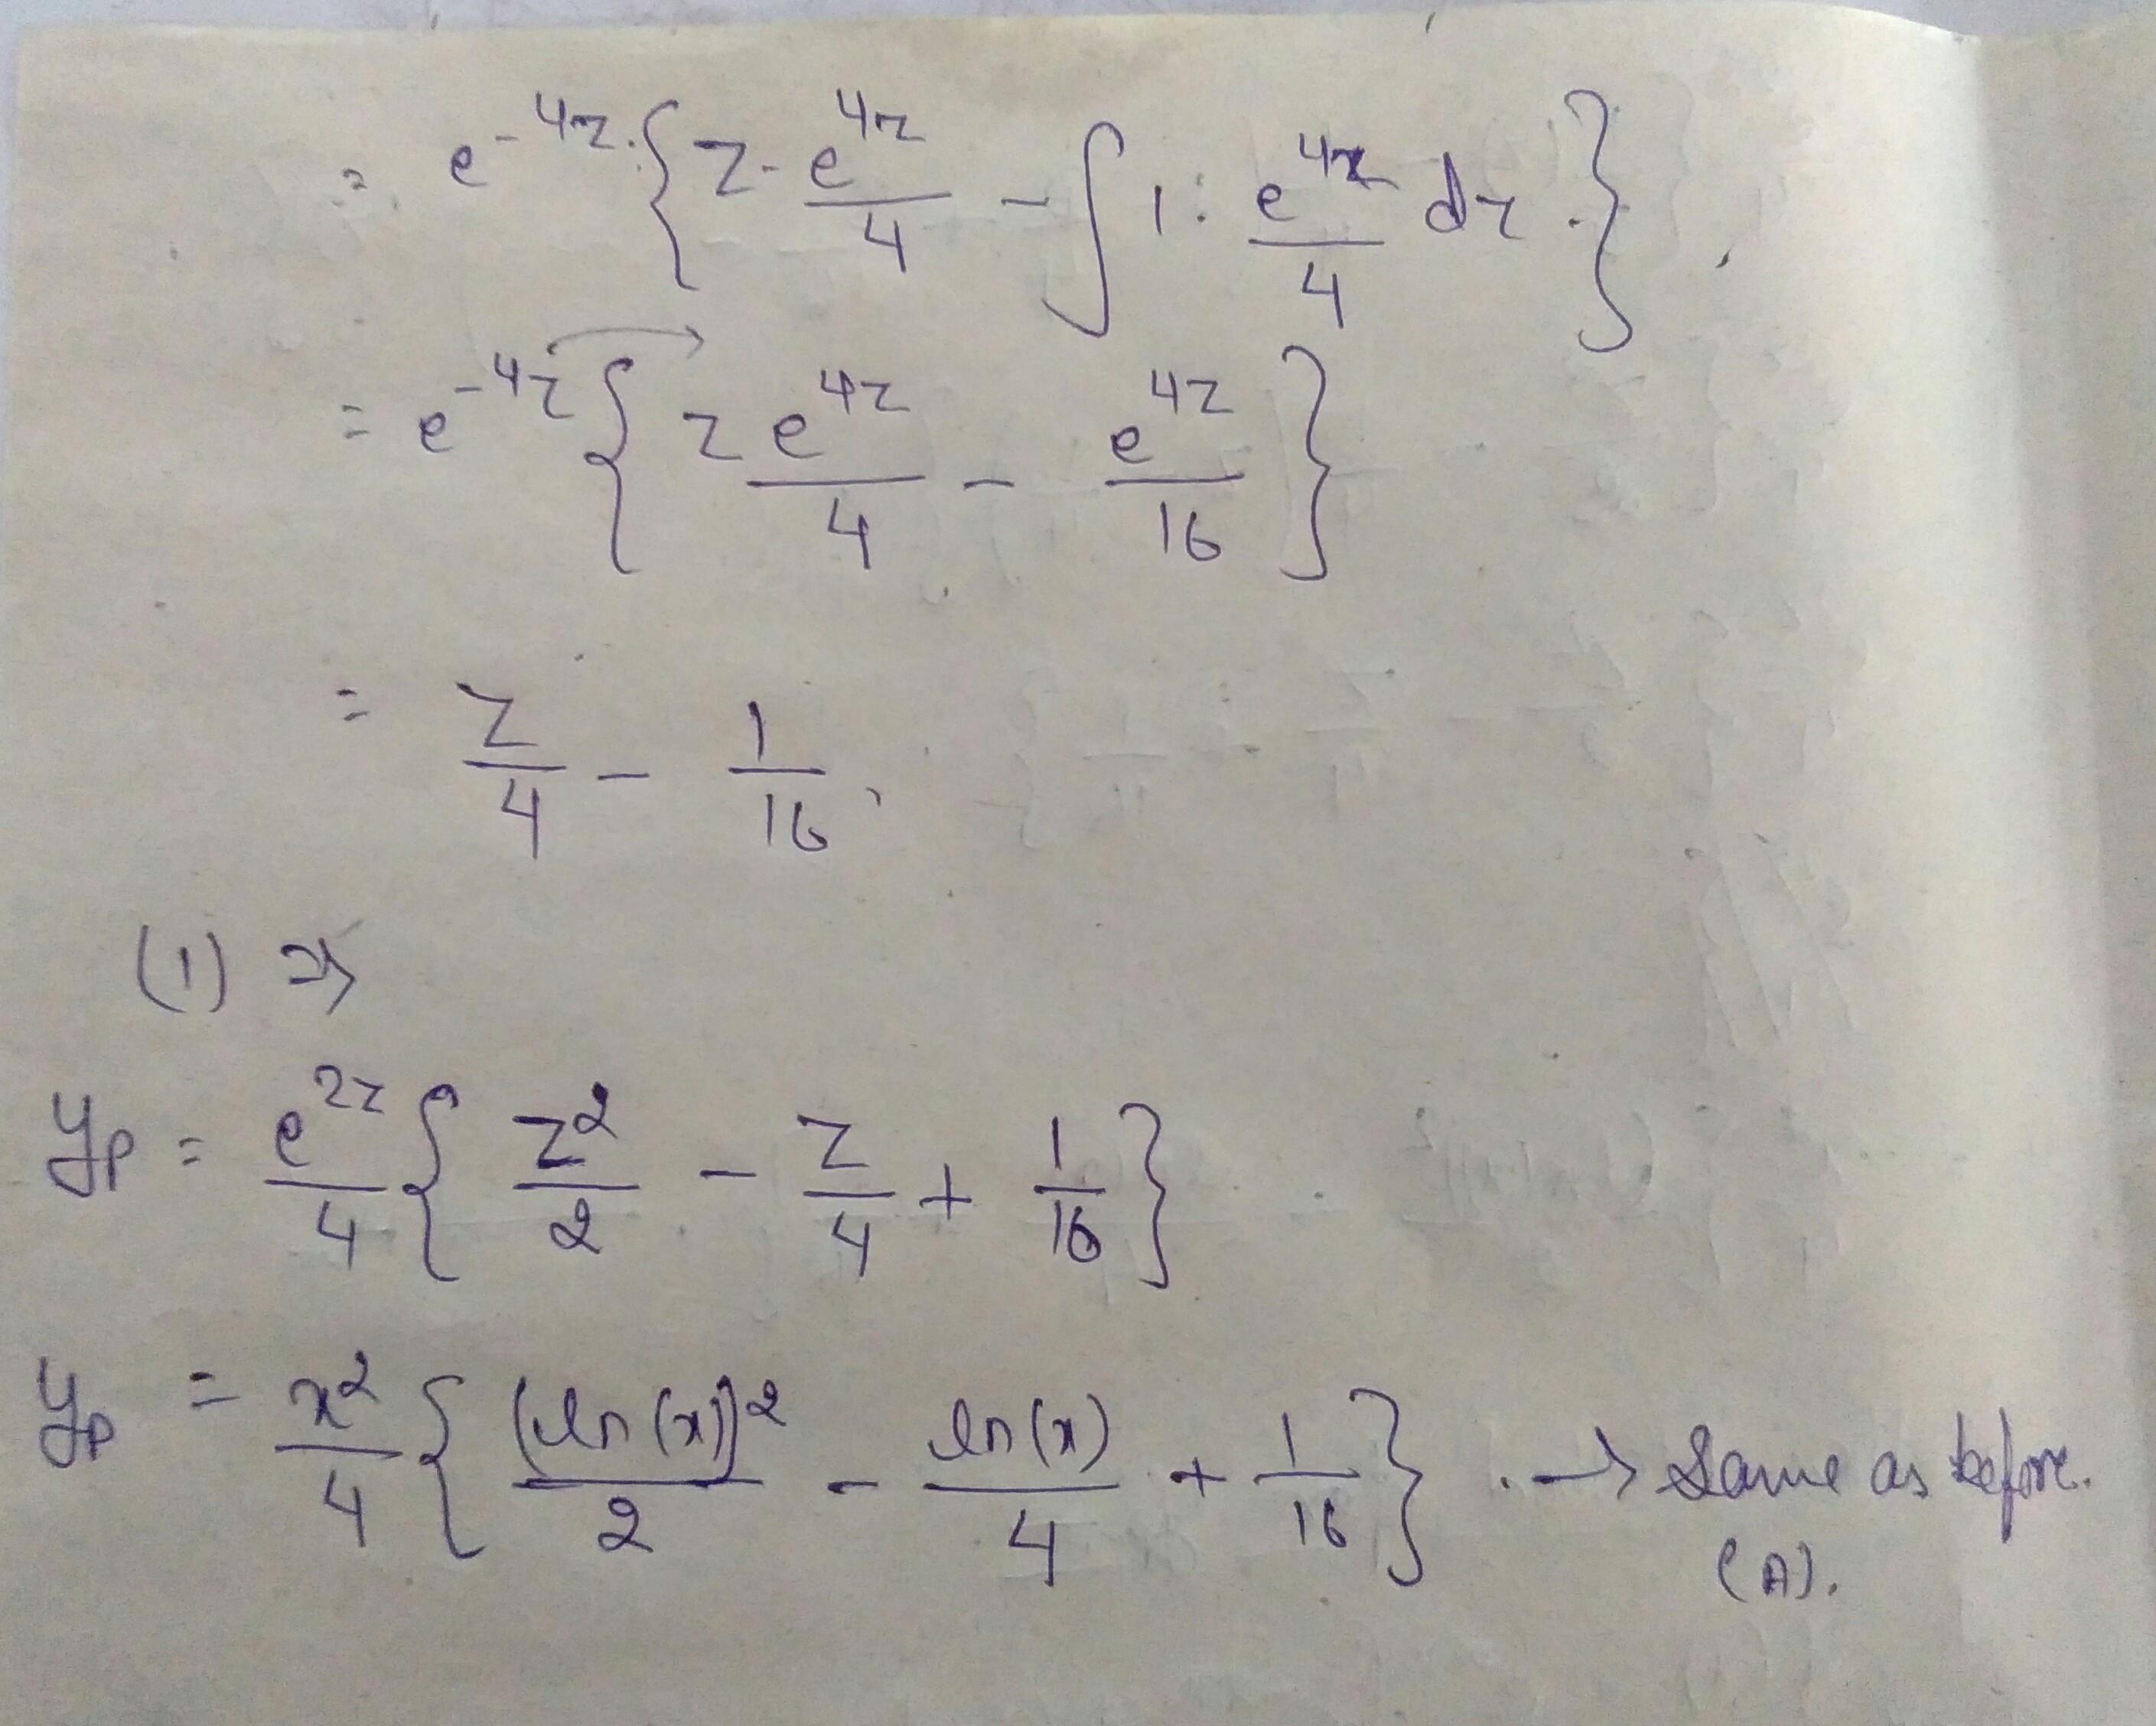 = e^{-4z} · { z · \frac{e^{4z}}{4} - ∫ 1 · \frac{e^{4z}}{4} dz }
= e^{-4z} { \frac{z e^{4z}}{4} - \frac{e^{4z}}{16} }
= \frac{z}{4} - \frac{1}{16} ,
(1) ⇒
y_p = \frac{e^{2z}}{4} { \frac{z^2}{2} - \frac{z}{4} + \frac{1}{16} }
y_p = \frac{x^2}{4} { \frac{(ln(x))^2}{2} - \frac{ln(x)}{4} + \frac{1}{16} } . → Same as before.
(A).